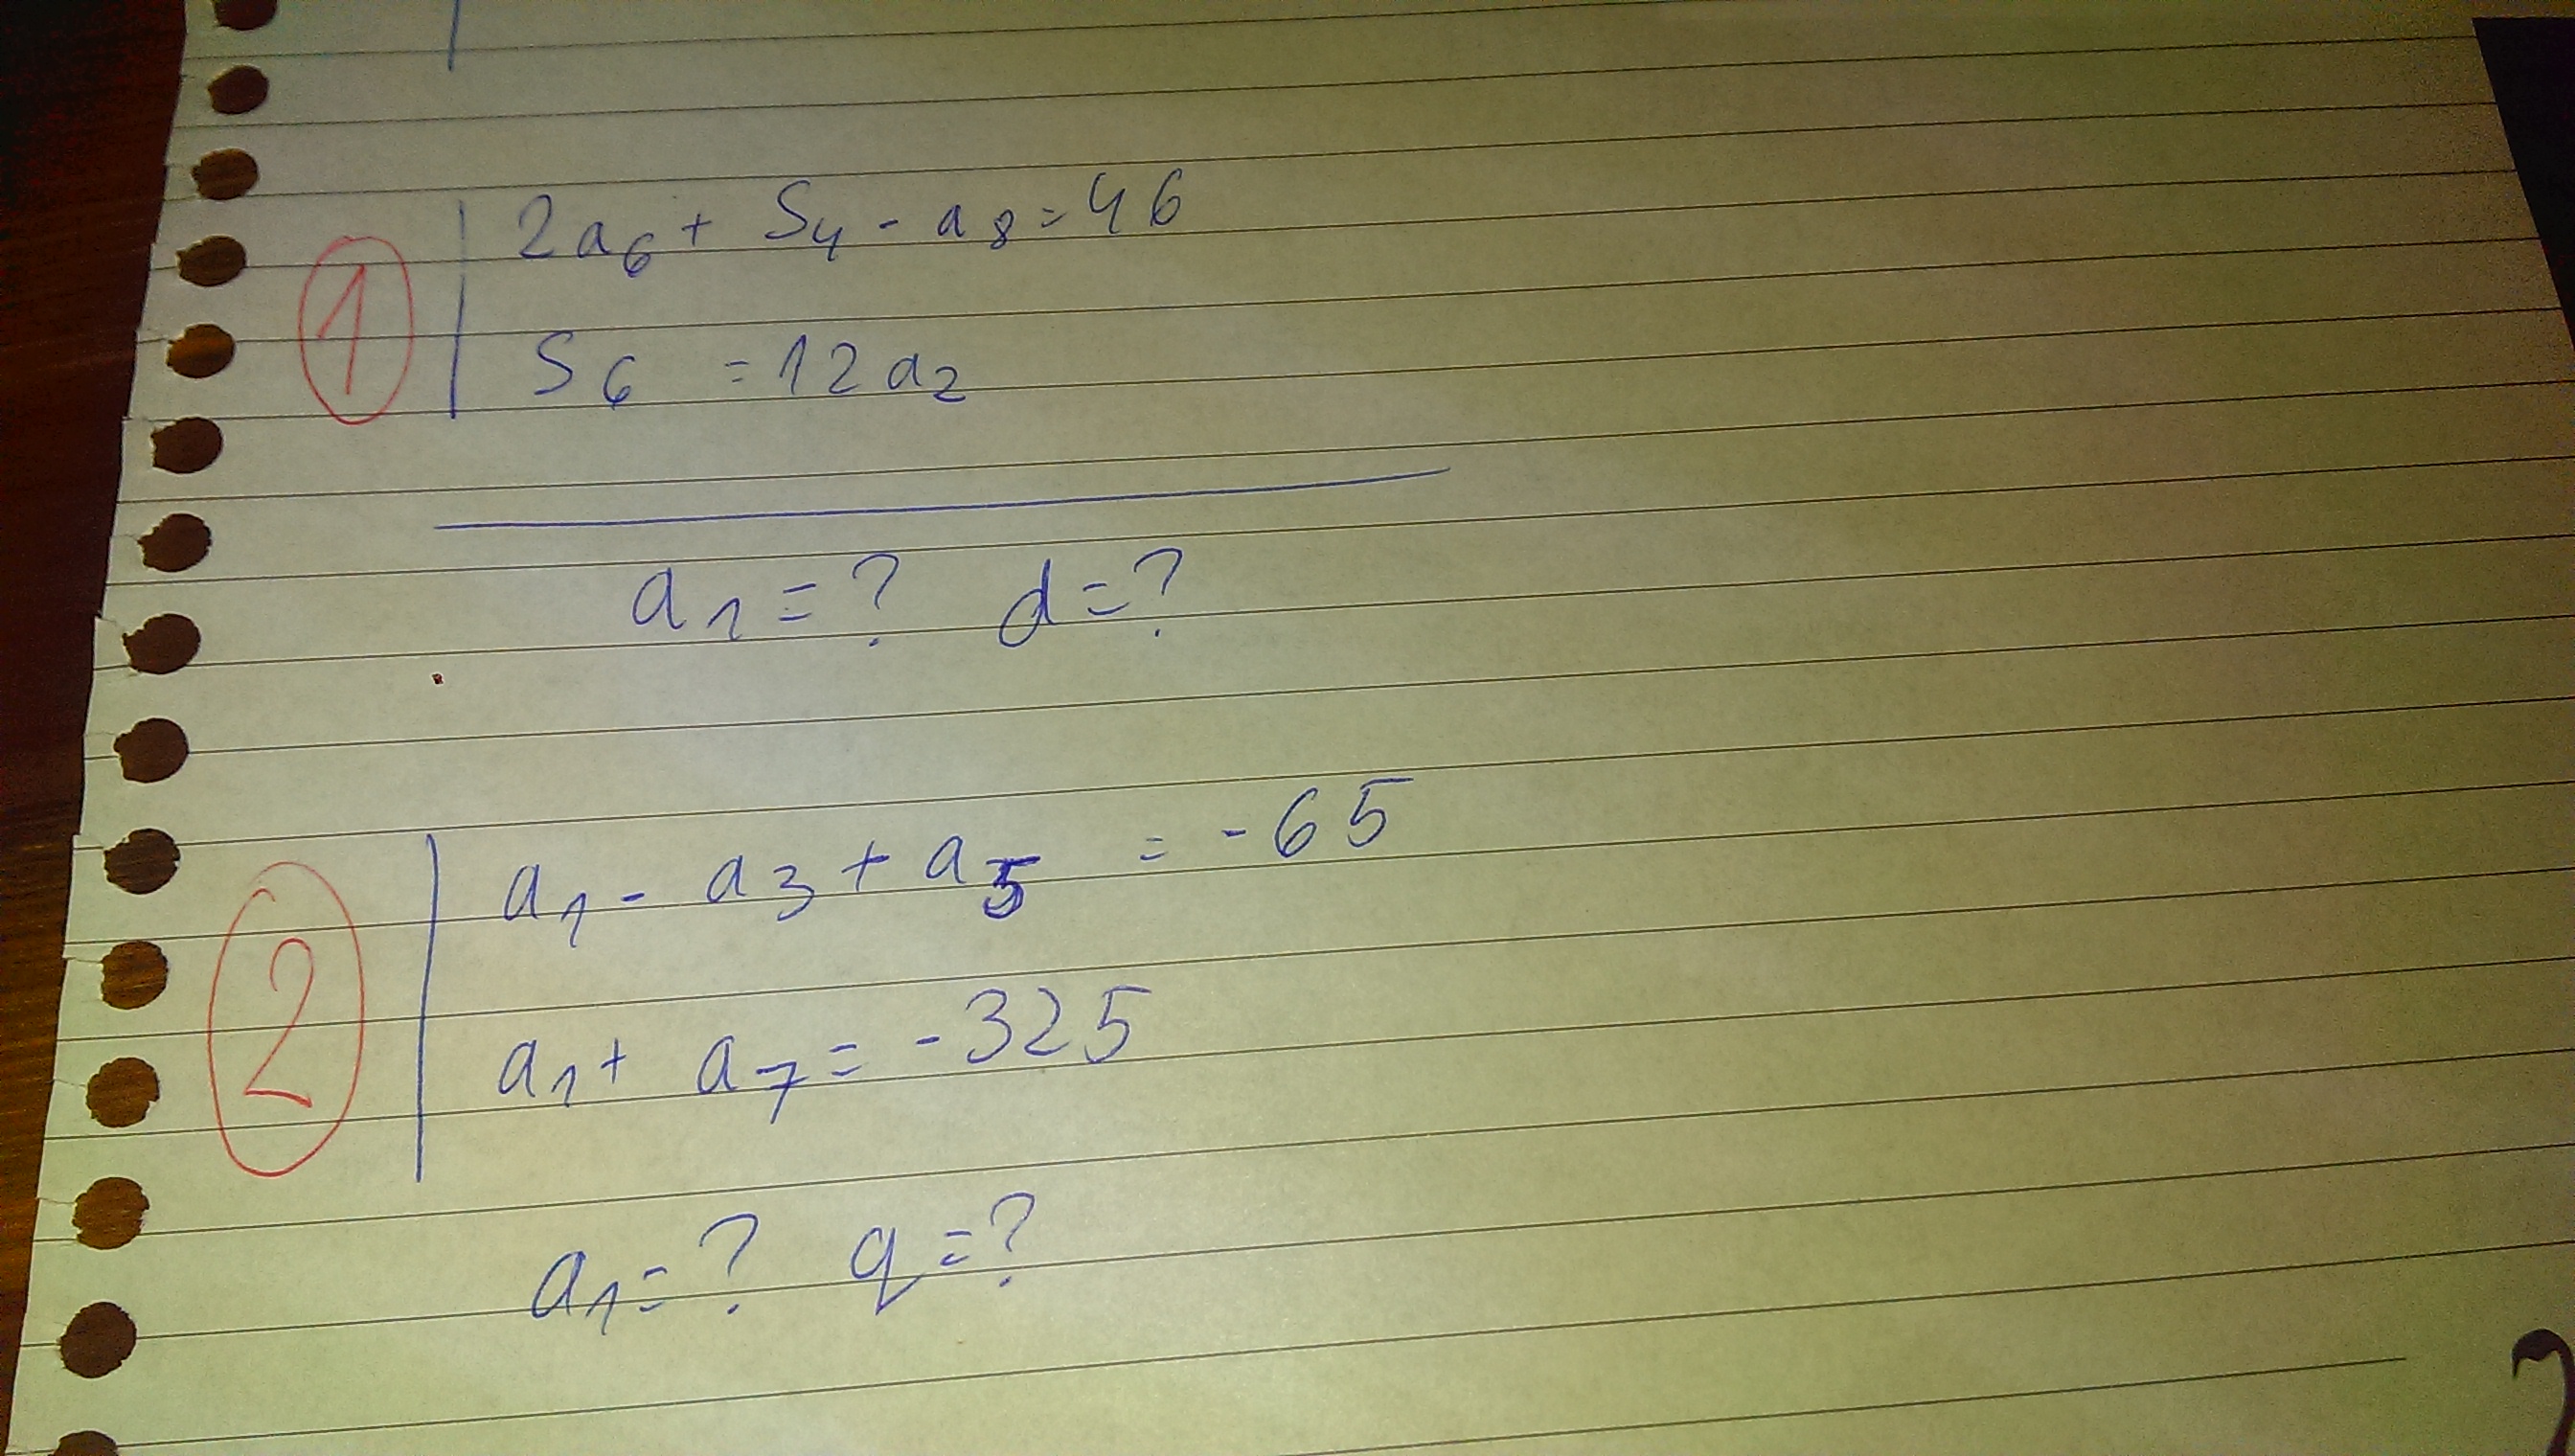 ① 2a₆ + S₄ - a₈ = 46
S₆ = 12a₂
a₁ = ? d = ?
② a₁ - a₃ + a₅ = -65
a₁ + a₇ = -325
a₁ = ? q = ?